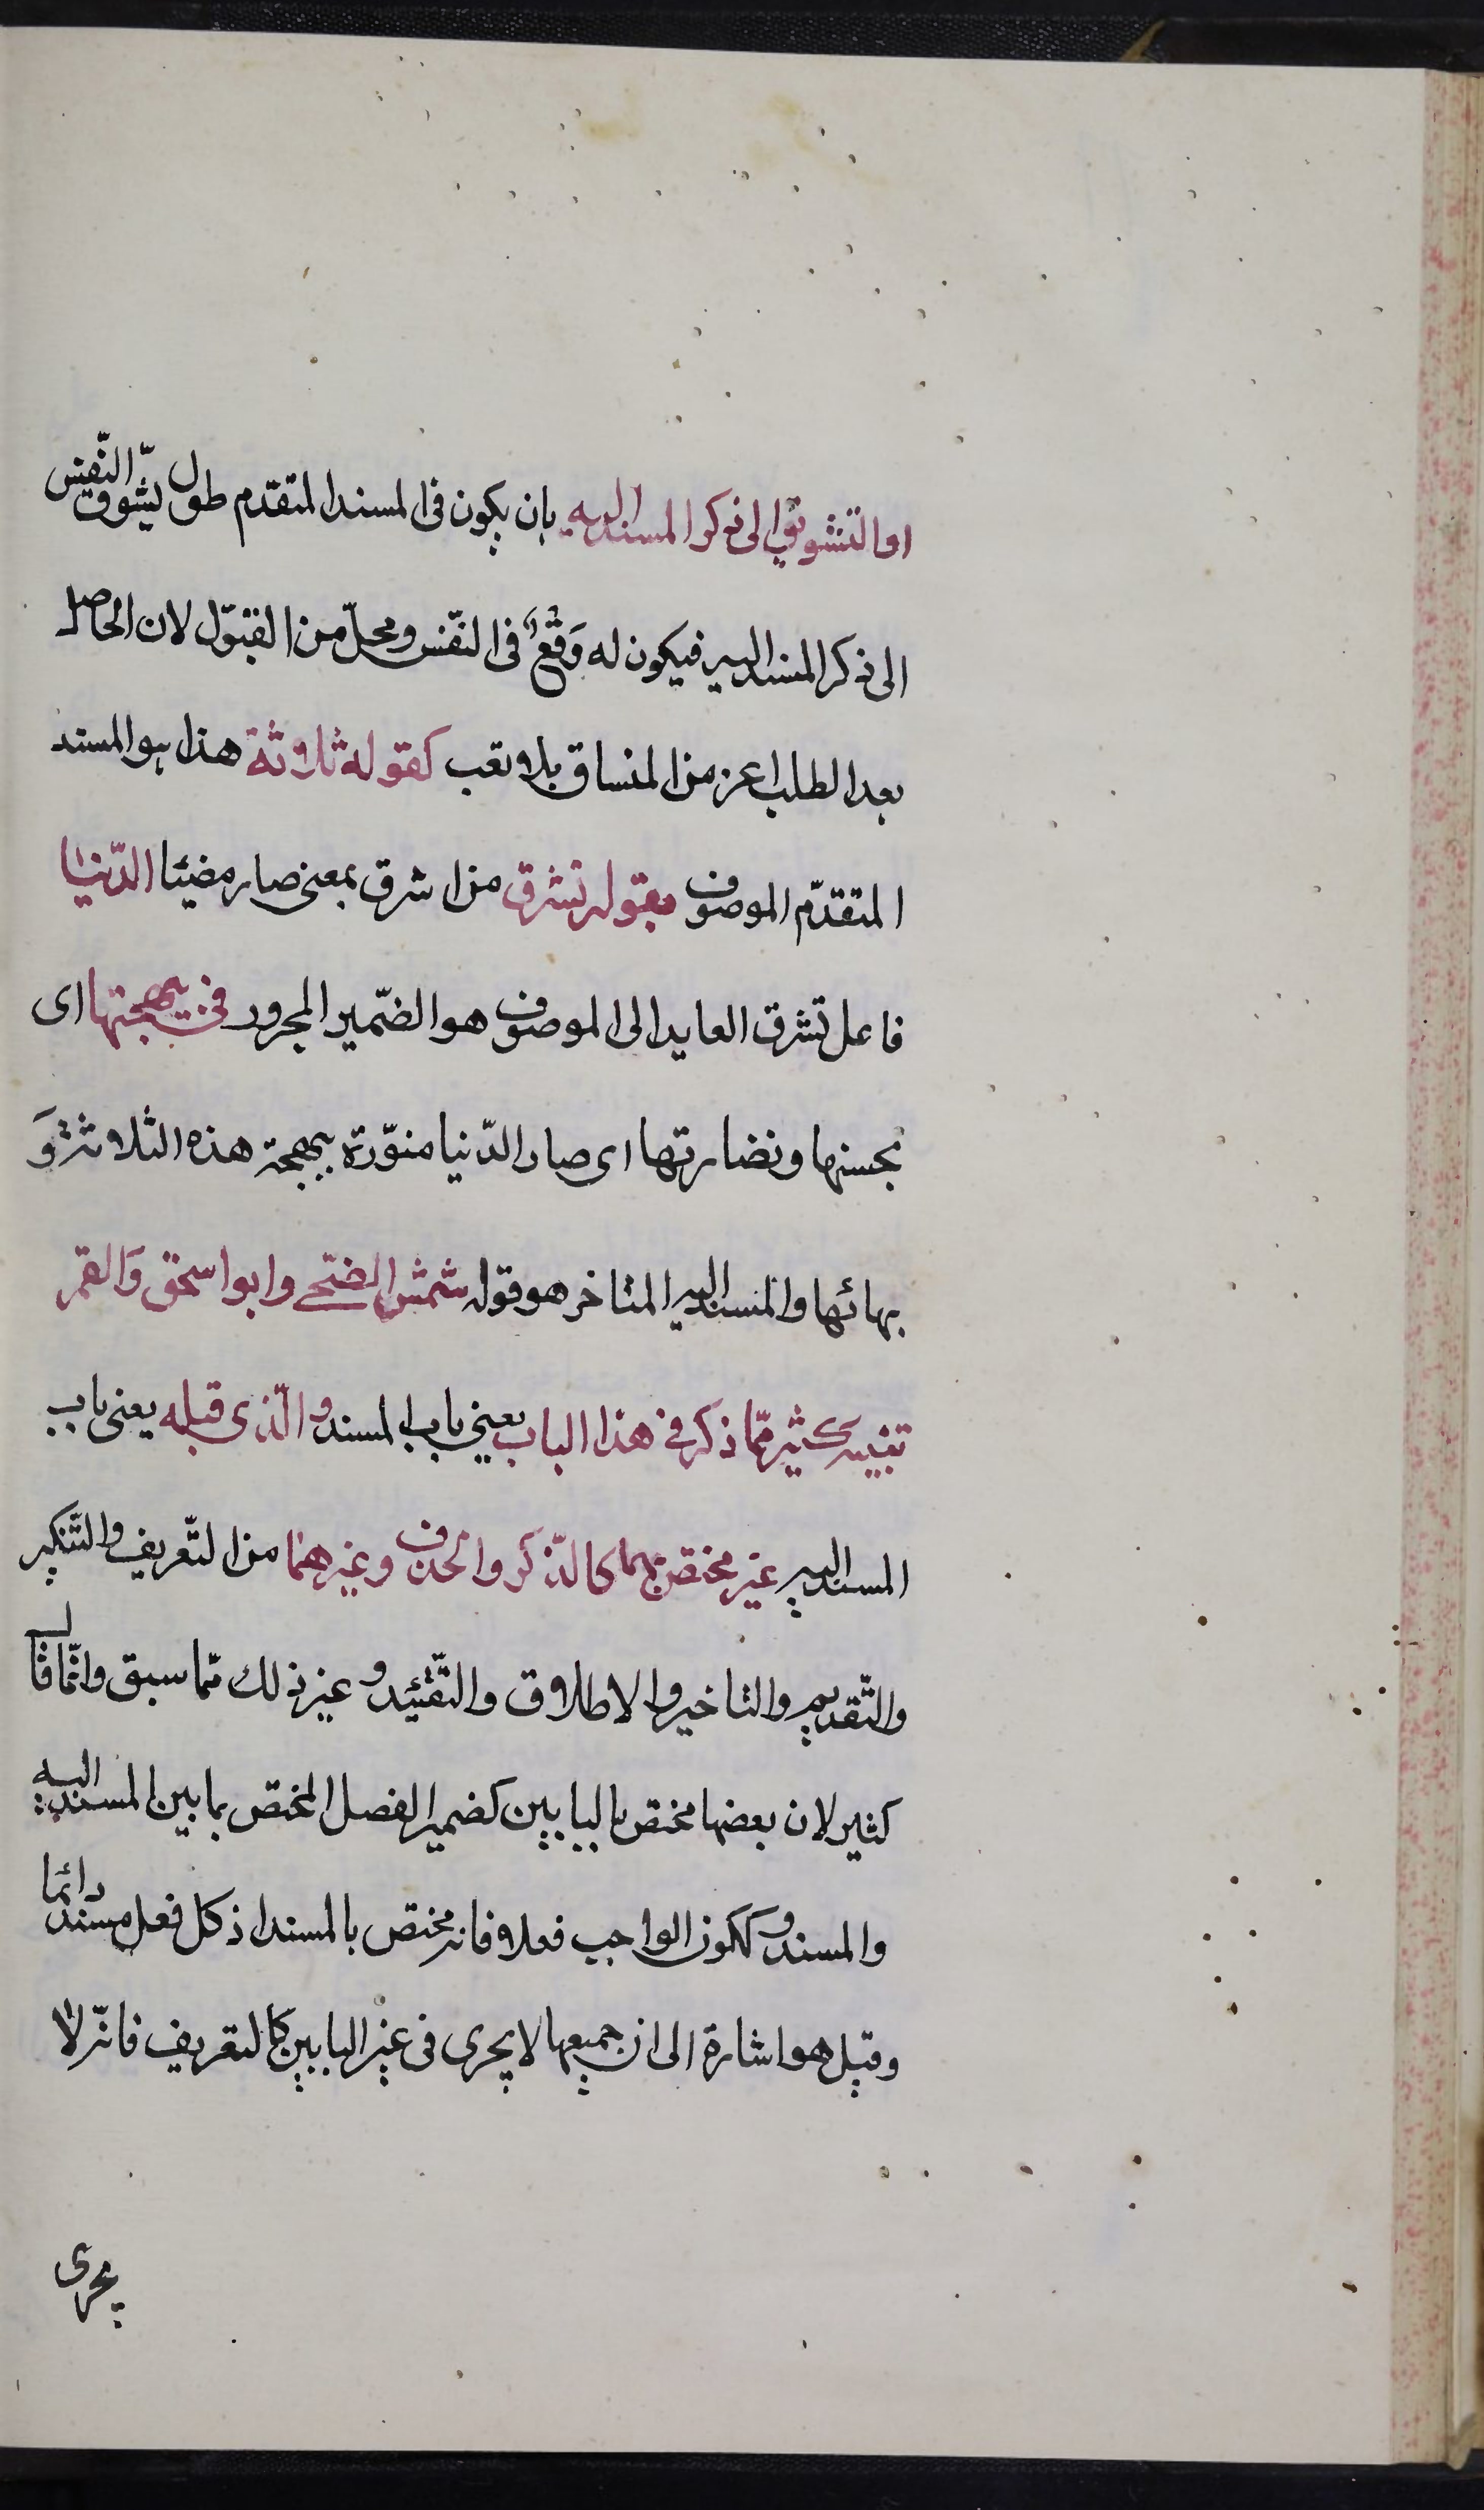 او التشويق الى ذكر المسند اليه بان يكون فى المسند المتقدم طول يشوق النّفس
الى ذكر المسند اليه فيكون له وَقْعٌ فى النّفس ومحلّ من القبول لان الحاصل
بعد الطلب اعز من المنساق بلا تعب كقوله ثلاثة هذا هو المسند
المتقدّم الموصوف بقوله تشرق من اشرق بمعنى صار مضيئا الدّنيا
فاعل تشرق العايد الى الموصوف هو الضّمير المجرور فى ببهجتها اى
بحسنها ونضارتها اى صار الدّنيا منوّرة ببهجة هذه الثلاثة وَ
بهائها والمسند اليه المتاخر هو قوله شمش الضّحى وابو اسحق وَالقمر
تنبيه كثير ممّا ذكر فى هذا الباب يعنى باب المسند والّذى قبله يعنى باب
المسند اليه غير مختص بهما كالذّكر والحذف وغيرهما من التّعريف والتّنكير
والتّقديم والتاخير والاطلاق والتّقييد وغير ذلك ممّا سبق وانّما قال
كثير لان بعضها مختص بالبابين كضمير الفصل المختص بما بين المسند اليه
والمسند وككون الواجب فعلا فانه مختص بالمسند اذ كل فعل مسند دائما
وقيل هو اشارة الى ان جميعها لا يجرى فى غير البابين كالتعريف فانّه لا
يجرى